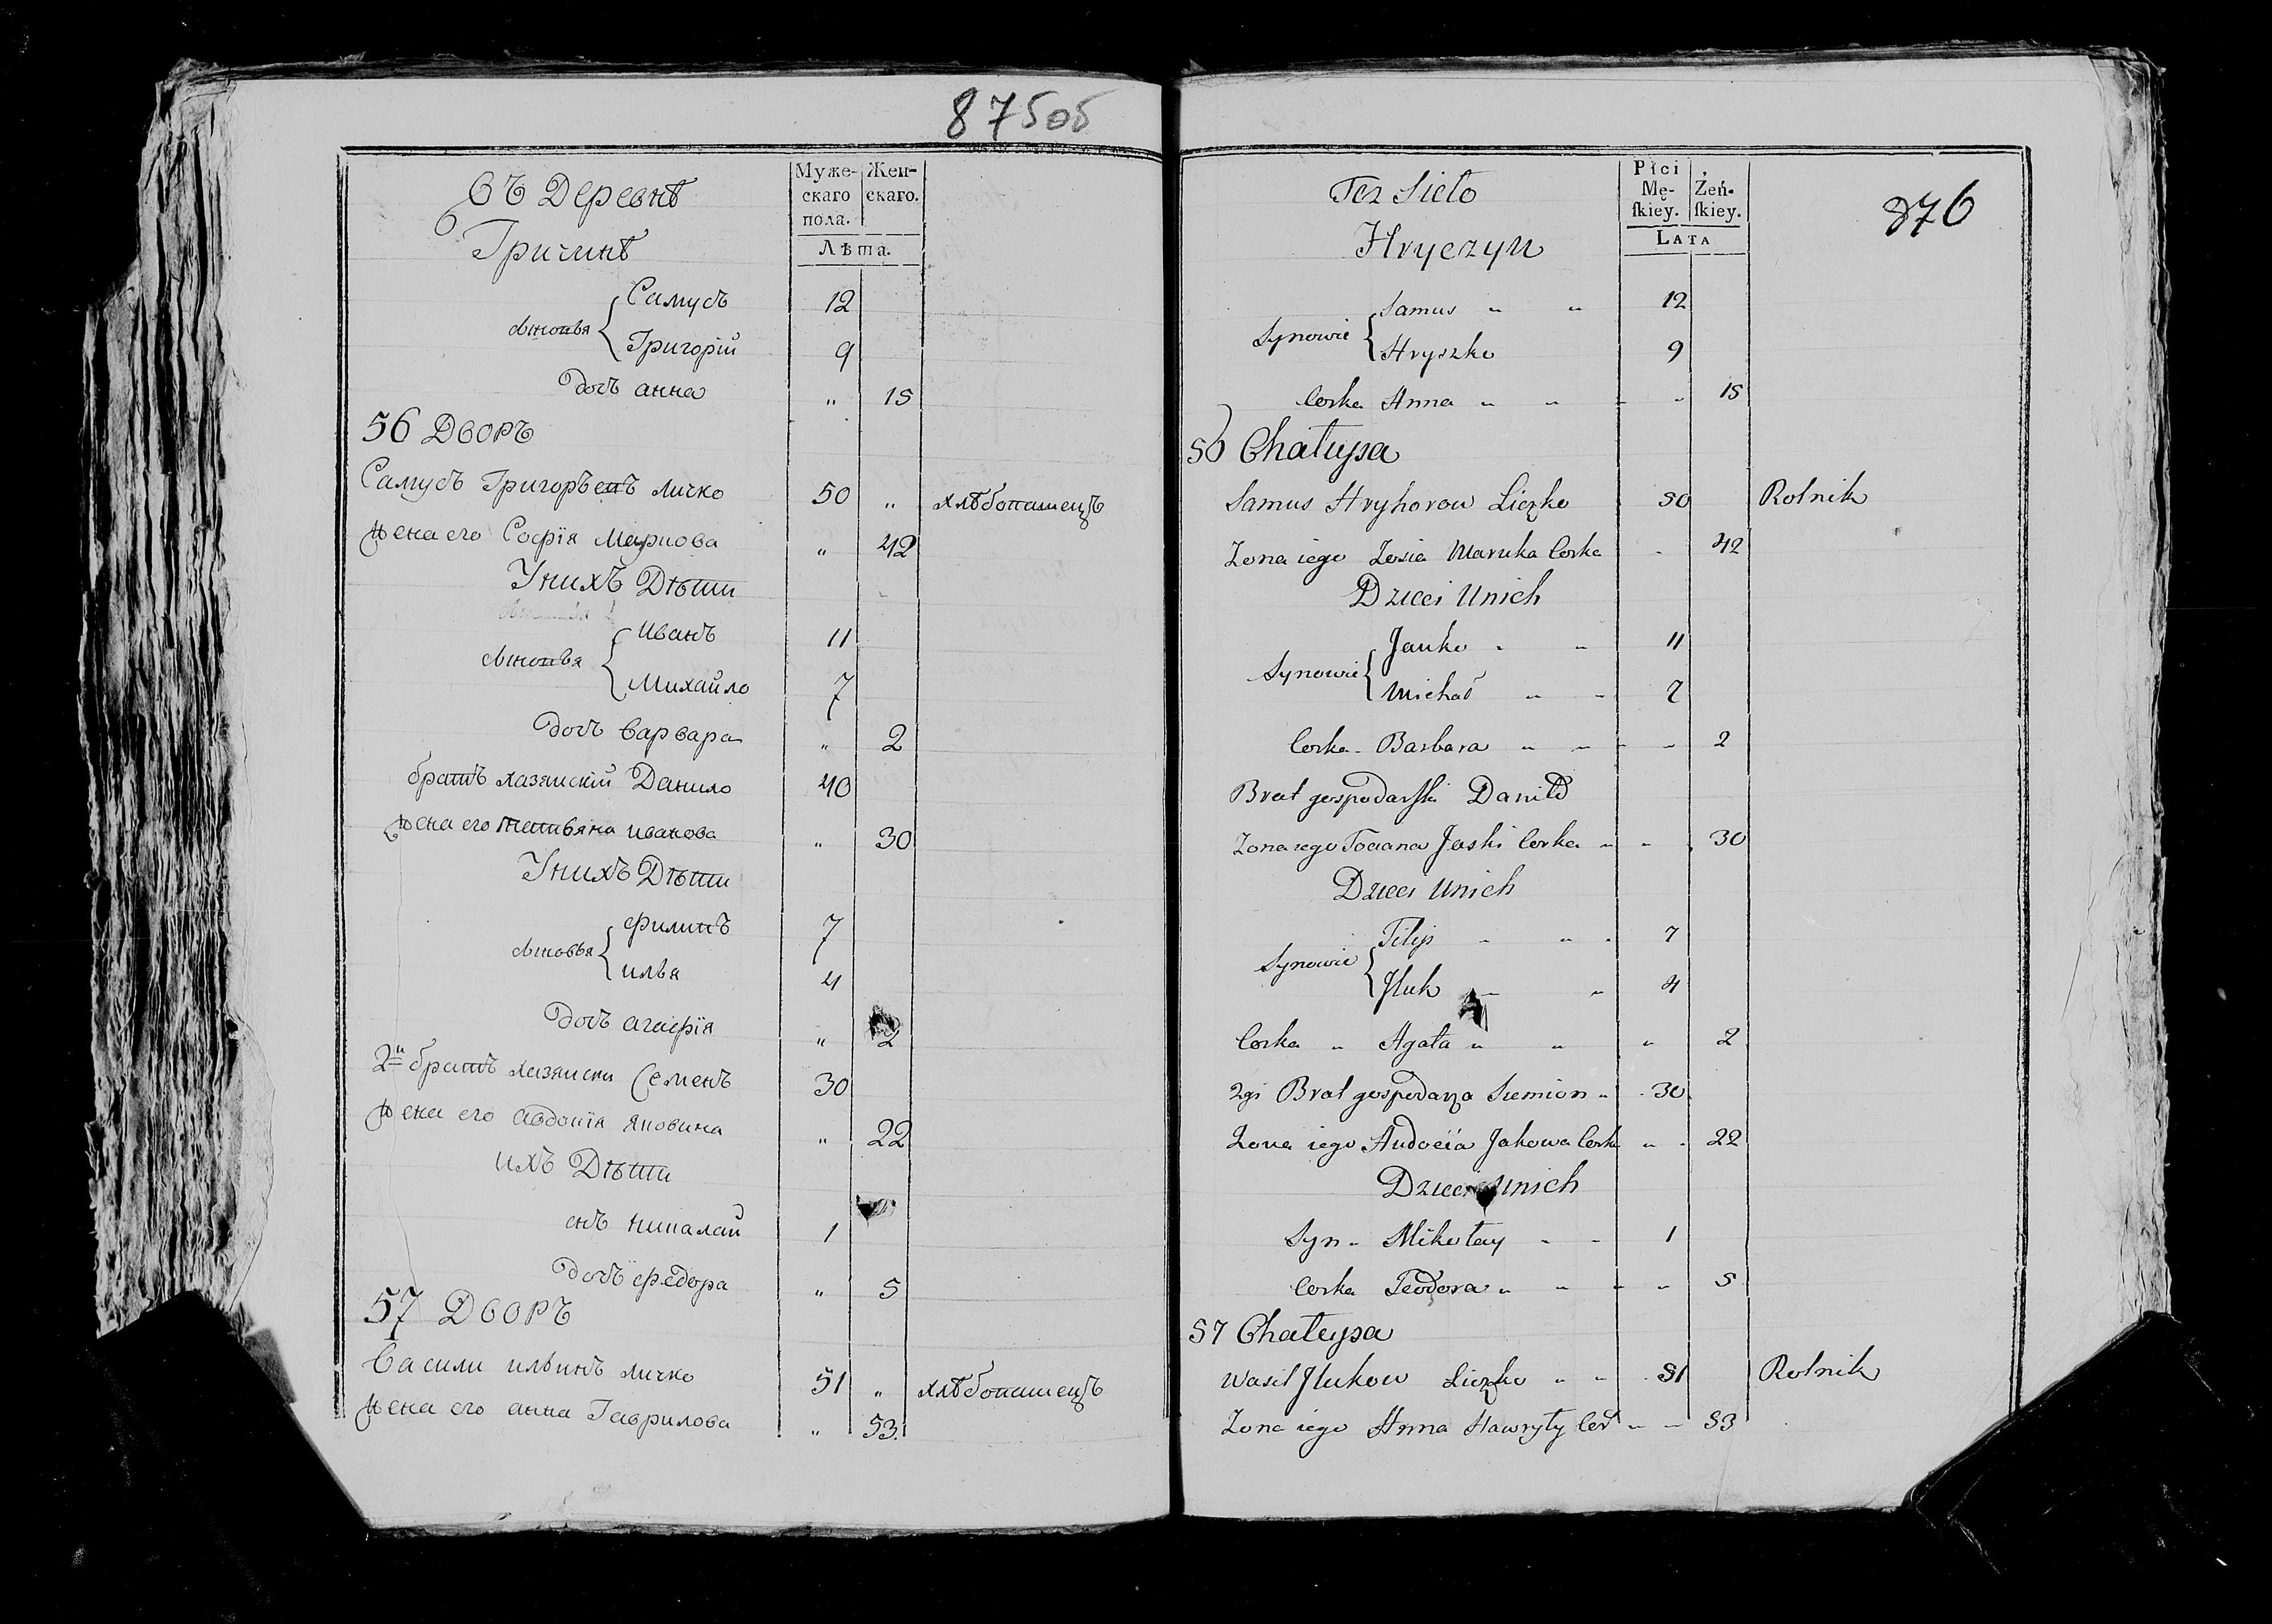 875об
Въ Деревнѣ
Гричинѣ
Муже-
скаго
пола.
Жен-
скаго.
Лѣта.
сыновья
Самусъ 12
Григорій 9
дочь анна " 15
56 Дворъ
Самусъ Григорьевъ личко 50 " хлѣбопашецъ
жена его Софія Маркова " 42
У нихъ Дѣти
сыновья
иванъ 11
Михайло 7
дочь варвара " 2
братъ хазяискій Данило 40
жена его татьяна иванова " 30
У нихъ Дѣти
сыновья
филипъ 7
илья 4
дочь агафія " 2
2й братъ хазяиски Семенъ 30
жена его авдотія яковина " 22
ихъ Дѣти
снъ никалай 1
дочь федора " 5
57 Дворъ
Васили ильинъ личко 51 " хлѣбопашецъ
жена его анна Гаврилова " 53.
876
Tez Sieło
Hryczyn
Płci
Mę-
ſkiey.
Żeń-
ſkiey.
Lata
Synowie
Samus " " 12
Hryszko 9
Corka Anna " " - " 15
56 Chałupa
Samus Hryhorow Liczko 50 Rolnik
Zona iego Zosia Maruka Corka - 42
Dzieci Unich
Synowie
Janko " " 11
Michał " " 7
Corka - Barbara " " - " 2
Brat gospodarſki Daniło
Zona iego Tociana Jaski Corka " " 30
Dzieci Unich
Synowie
Filip " " 7
Jluk " " 4
Corka " Agata " " " " 2
2gi Brat gospodarza Siemion " 30
Zona iego Audocia Jakowa Corka " " 22
Dzieci Unich
Syn - Mikołay " " 1
Corka Teodora " " - " 5
57 Chałupa
Wasil Jlukow Liczko " " 51 Rolnik
Zona iego Anna Hawryły Cor " " 53